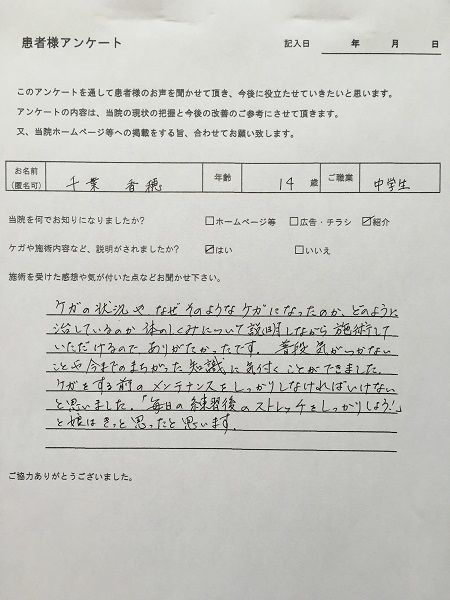 患者様アンケート 記入日 年 月 日
このアンケートを通して患者様のお声を聞かせて頂き、今後に役立たせていきたいと思います。
アンケートの内容は、当院の現状の把握と今後の改善のご参考にさせて頂きます。
又、当院ホームページ等への掲載をする旨、合わせてお願い致します。
お名前 (匿名可) 千葉 香穂 年齢 14 歳 ご職業 中学生
当院を何でお知りになりましたか? □ホームページ等 □広告・チラシ ☑紹介
ケガや施術内容など、説明がされましたか? ☑はい □いいえ
施術を受けた感想や気が付いた点などお聞かせ下さい。
ケガの状況や、なぜそのようなケガになったのか、どのように
治しているのか体のしくみについて説明しながら施術して
いただけるのでありがたかったです。普段気がつかない
ことや今までのまちがった知識に気付くことができました。
ケガをする前のメンテナンスをしっかりしなければいけない
と思いました。「毎日の練習後のストレッチをしっかりしよう!」
と娘はきっと思ったと思います。
ご協力ありがとうございました。